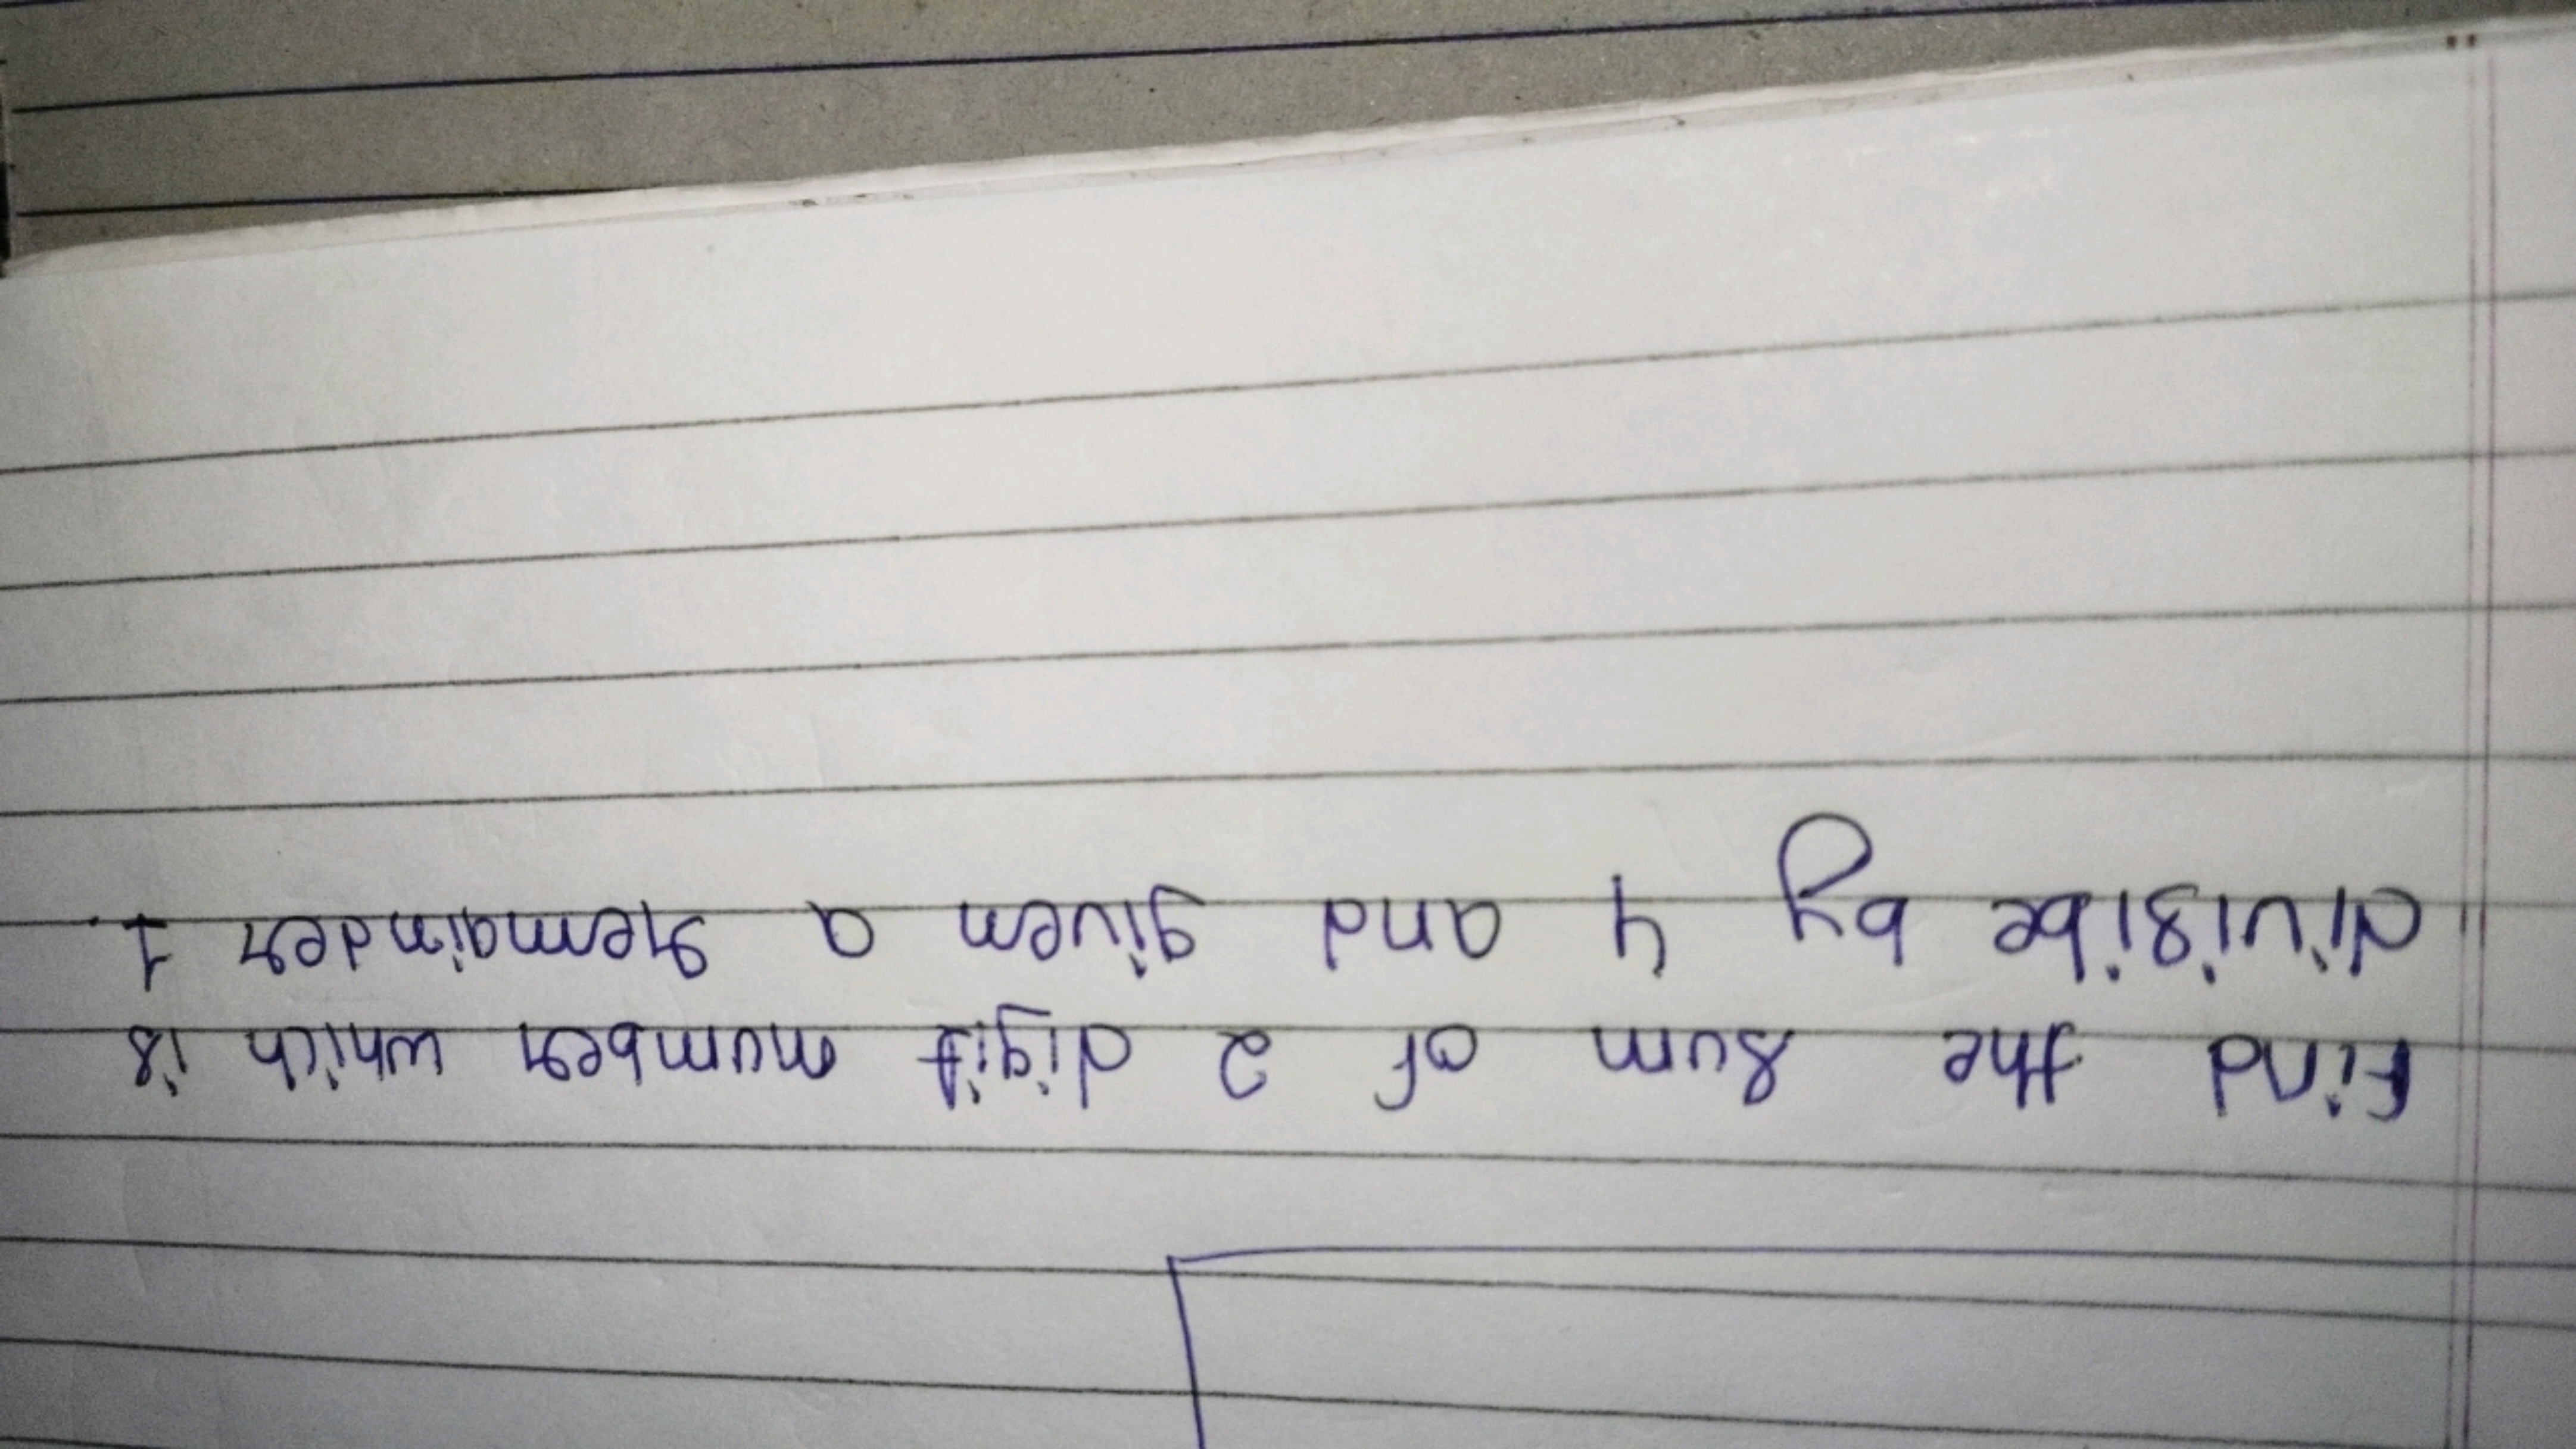 Find the sum of 2 digit number which is
divisibe by 4 and given a remainder 1.